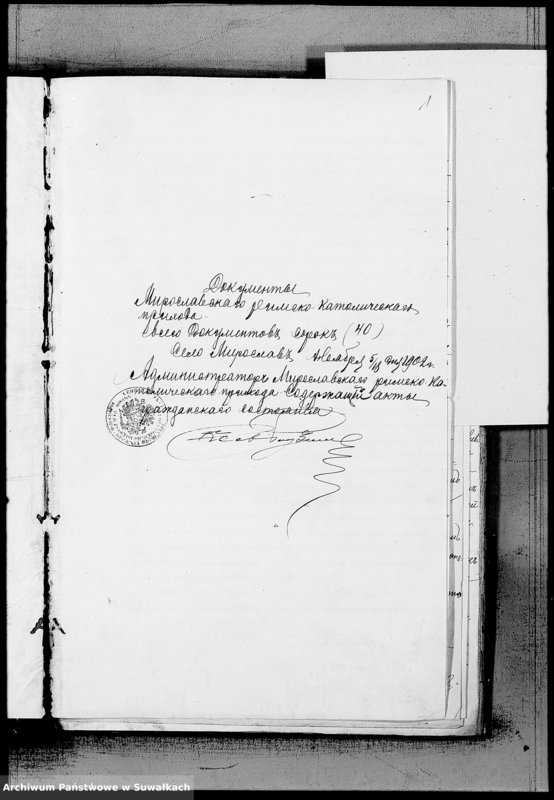 1
Документы
Мирославскаго римско-католическаго
прихода
всего Документовъ сорокъ (40)
Село Мирославъ, Ноября 5/18 дня 1902 г.
Администраторъ Мирославскаго римско ка-
толическаго прихода Содержащій акты
гражданскаго состоянія
Archiwum Państwowe w Suwałkach